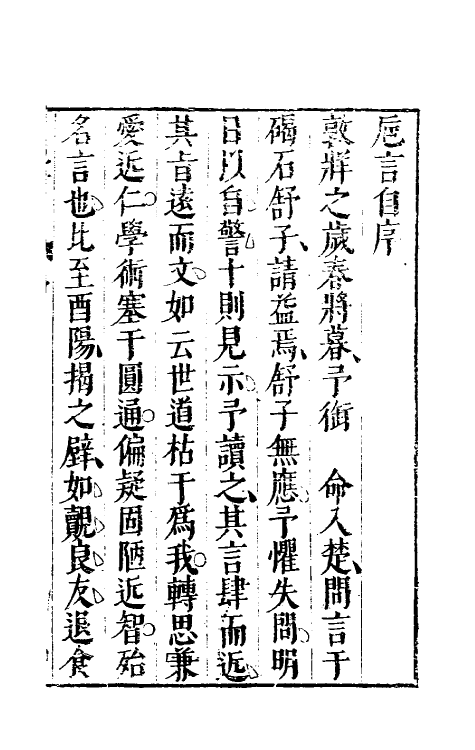 卮言自序
敦牂之歲春將暮予銜　命入楚問言于
碣石舒子請益焉舒子無應予懼失問明
日以自警十則見示予讀之其言肆而近
其旨遠而文如云世道枯于爲我轉思兼
愛近仁學術塞于圓通偏疑固陋近智殆
名言也比至酉陽揭之壁如覿良友退食